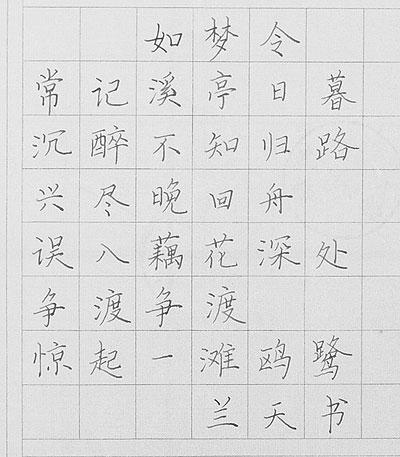 如梦令
常记溪亭日暮
沉醉不知归路
兴尽晚回舟
误入藕花深处
争渡争渡
惊起一滩鸥鹭
兰天书